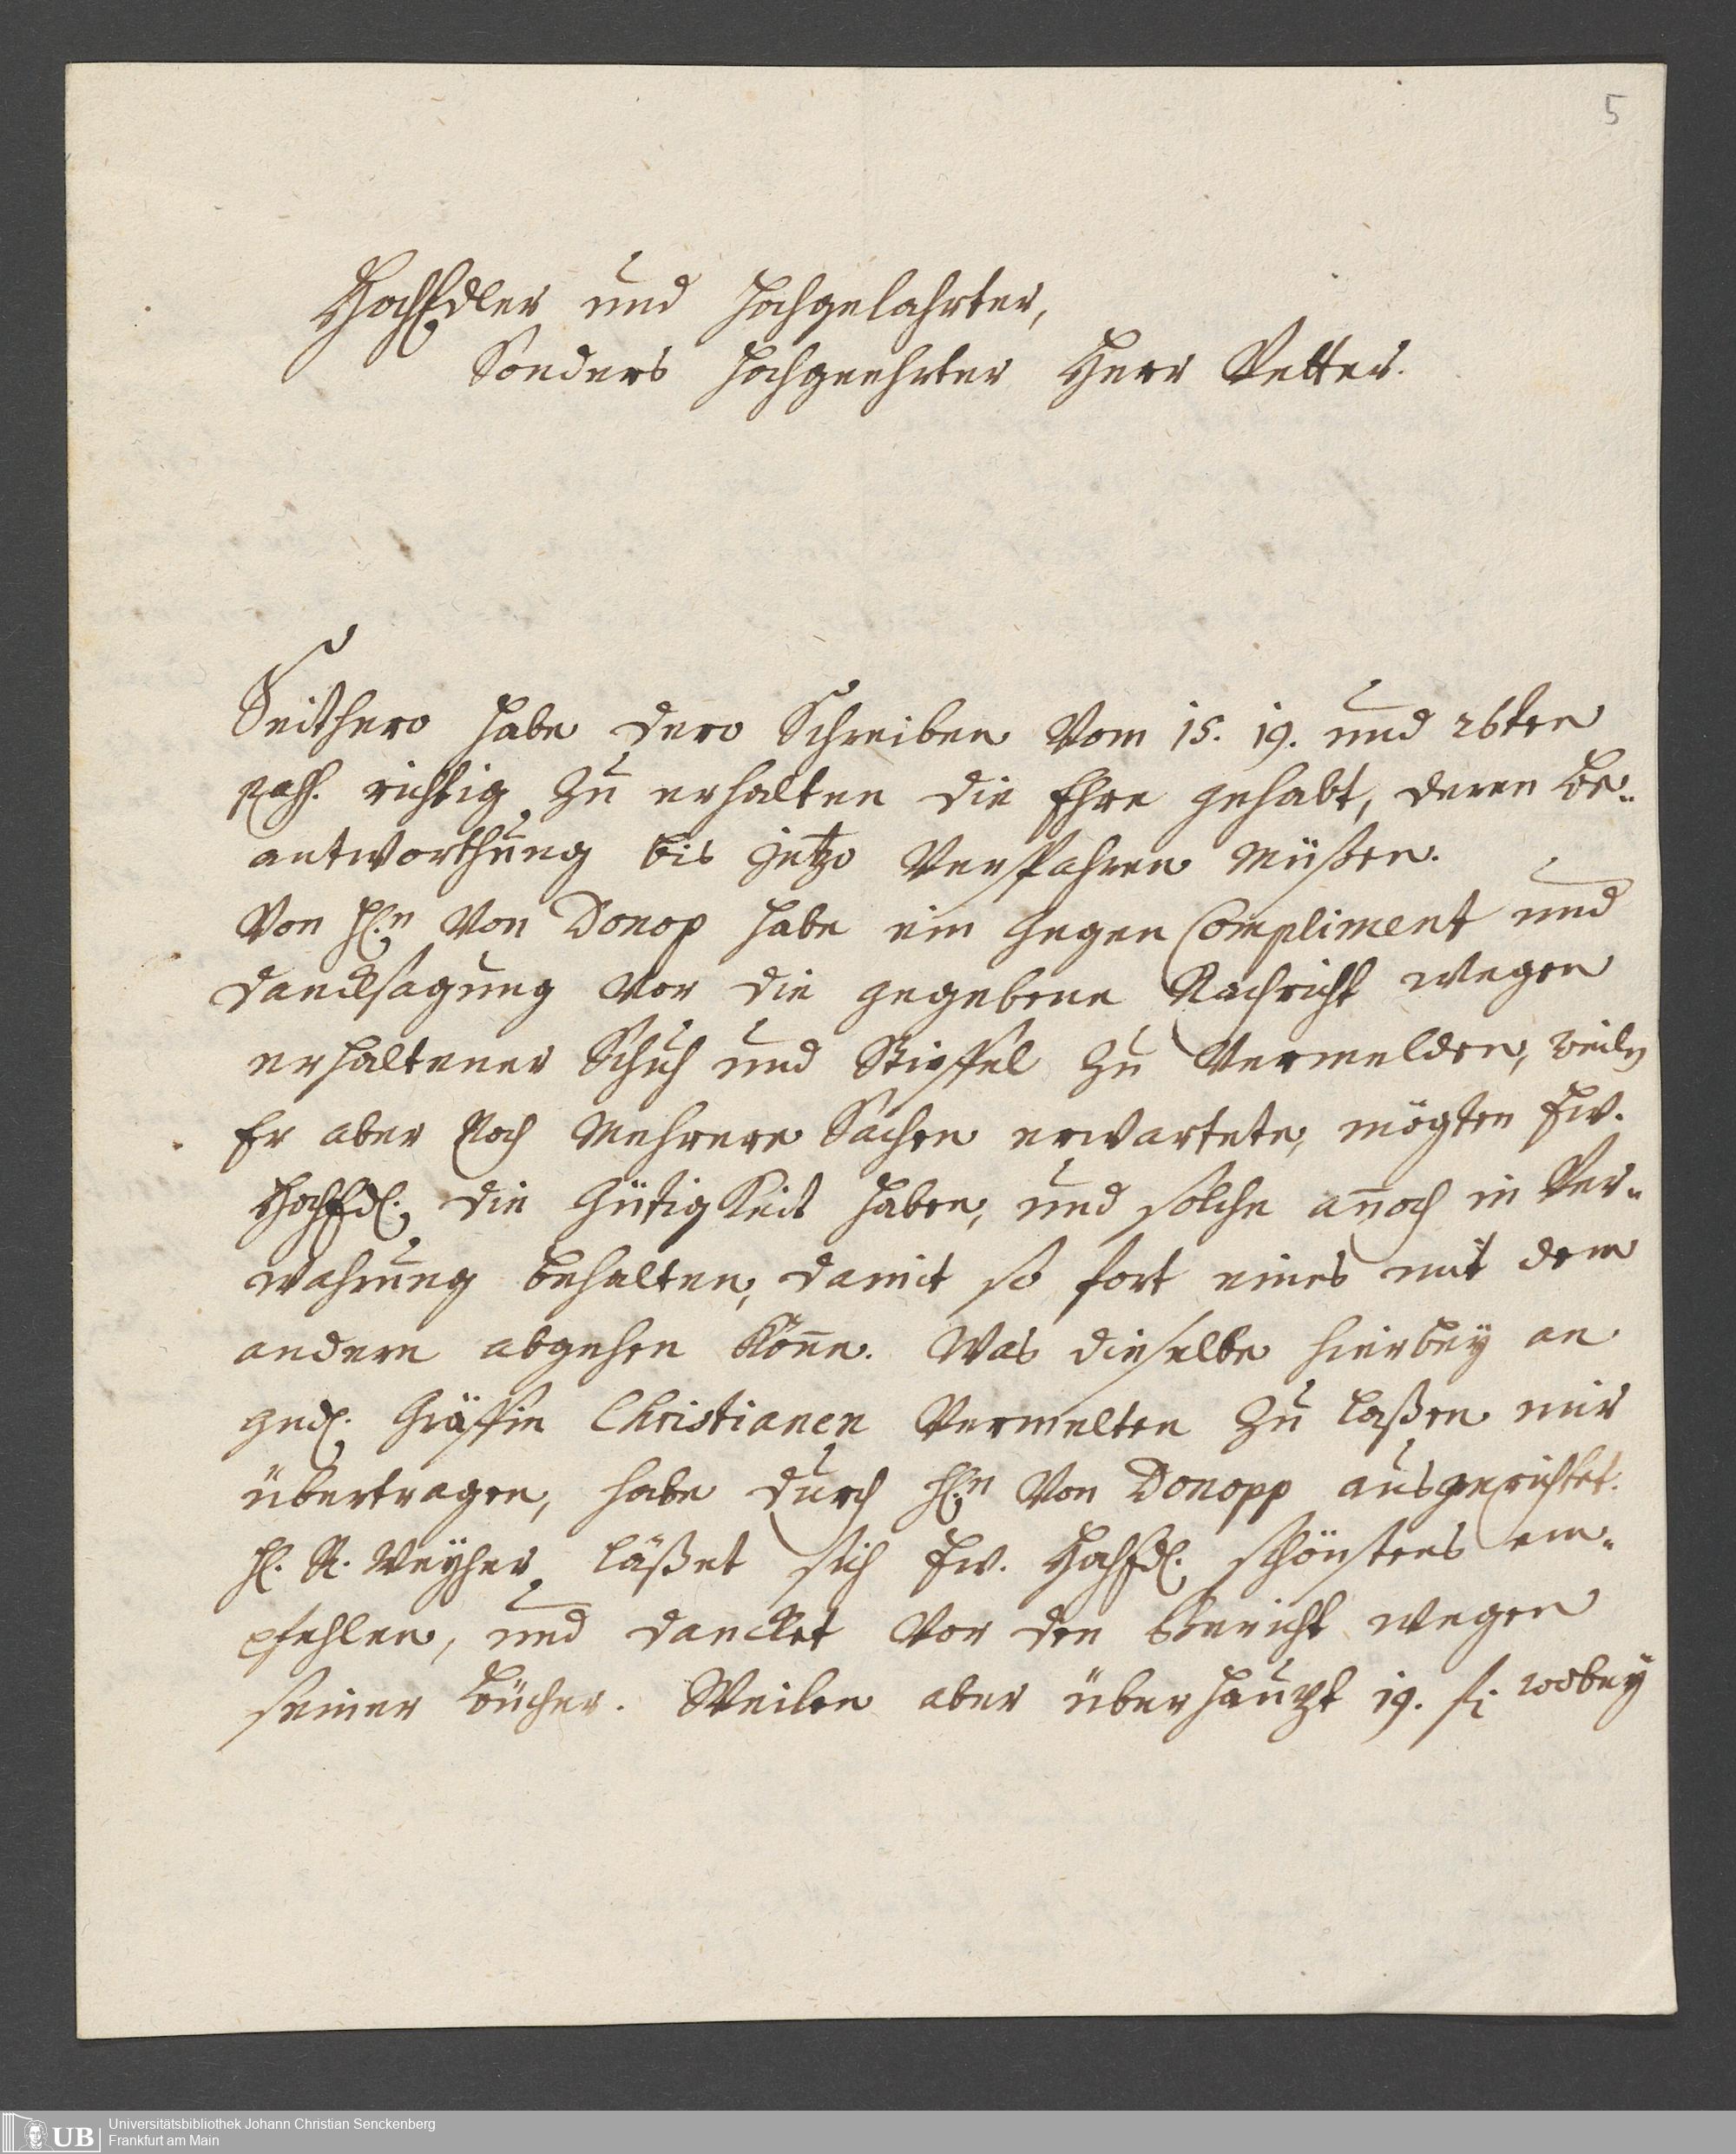 5
HochEdler und Hochgelahrter,
Sonders Hochgeehrter Herr Vetter.
Seithero habe dero Schreiben Vom 15. 19. und 26ten
pass. richtig zu erhalten die Ehre gehabt, deren be-
antworthung bis jetzo Versparen müßen.
Von H.n Von Donop habe ein Gegen Compliment und
dancksagung vor die gegebene Nachricht wegen
erhaltener Schuh und Stieffel zu Vermelden, weiln
Er aber noch mehrere Sachen erwartete, mögten Ew.
HochEdl. die Gütigkeit haben, und solche annoch in Ver-
wahrung behalten, damit so fort eines mit dem
andern abgehen könne. Was dieselbe hierbey an
gnd. Gräffin Christianen Vermelten zu laßen mir
übertragen, habe durch H.n Von Donopp ausgerichtet.
H. R. Weyher läßet sich Ew. HochEdl. schönstens em-
pfehlen, und dancket vor den Bericht wegen
seiner bücher. Weilen aber überhaupt 19. fl. wobey
UB Universitätsbibliothek Johann Christian Senckenberg
Frankfurt am Main